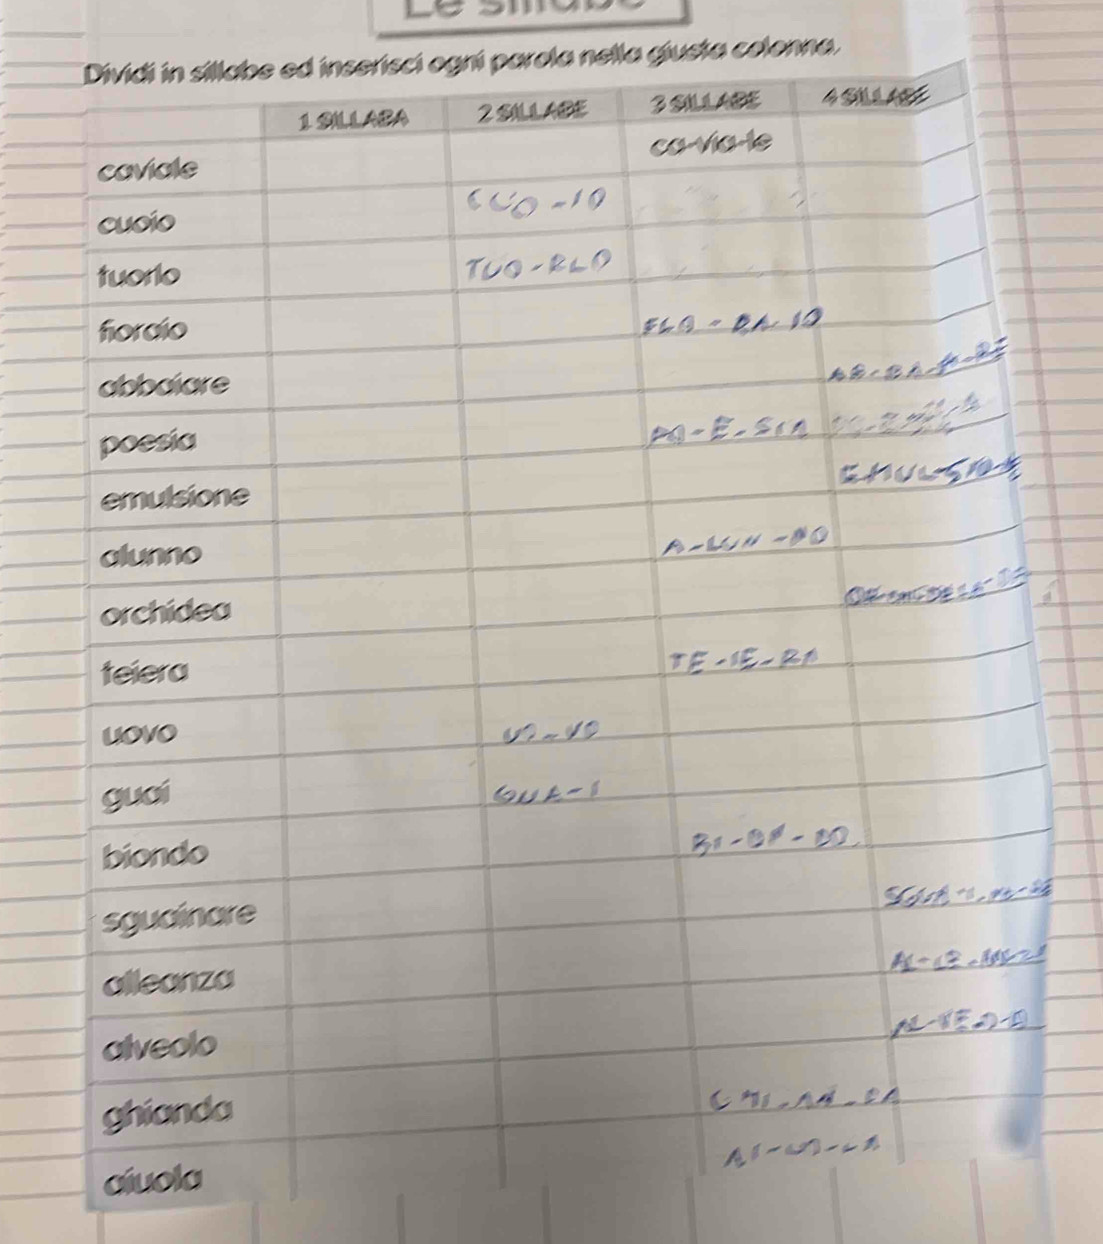 Le sillabe
Dividi in sillabe ed inserisci ogni parola nella giusta colonna.
1 SILLABA 2 SILLABE 3 SILLABE 4 SILLABE
caviale ca-via-le
cuoio CUO-IO
tuorlo TUO-RLO
fioraio RA-IO
abbaiare AB-BA-
poesia PO-E-SIA
emulsione
alunno A-LUN-NO
orchidea
teiera TE-IE-RA
uovo UO-VO
guai GUA-I
biondo BI-ON-DO
sguainare
alleanza AL-LE-AN-ZA
alveolo AL-VE-O-LO
ghianda
aiuola AI-UO-LA